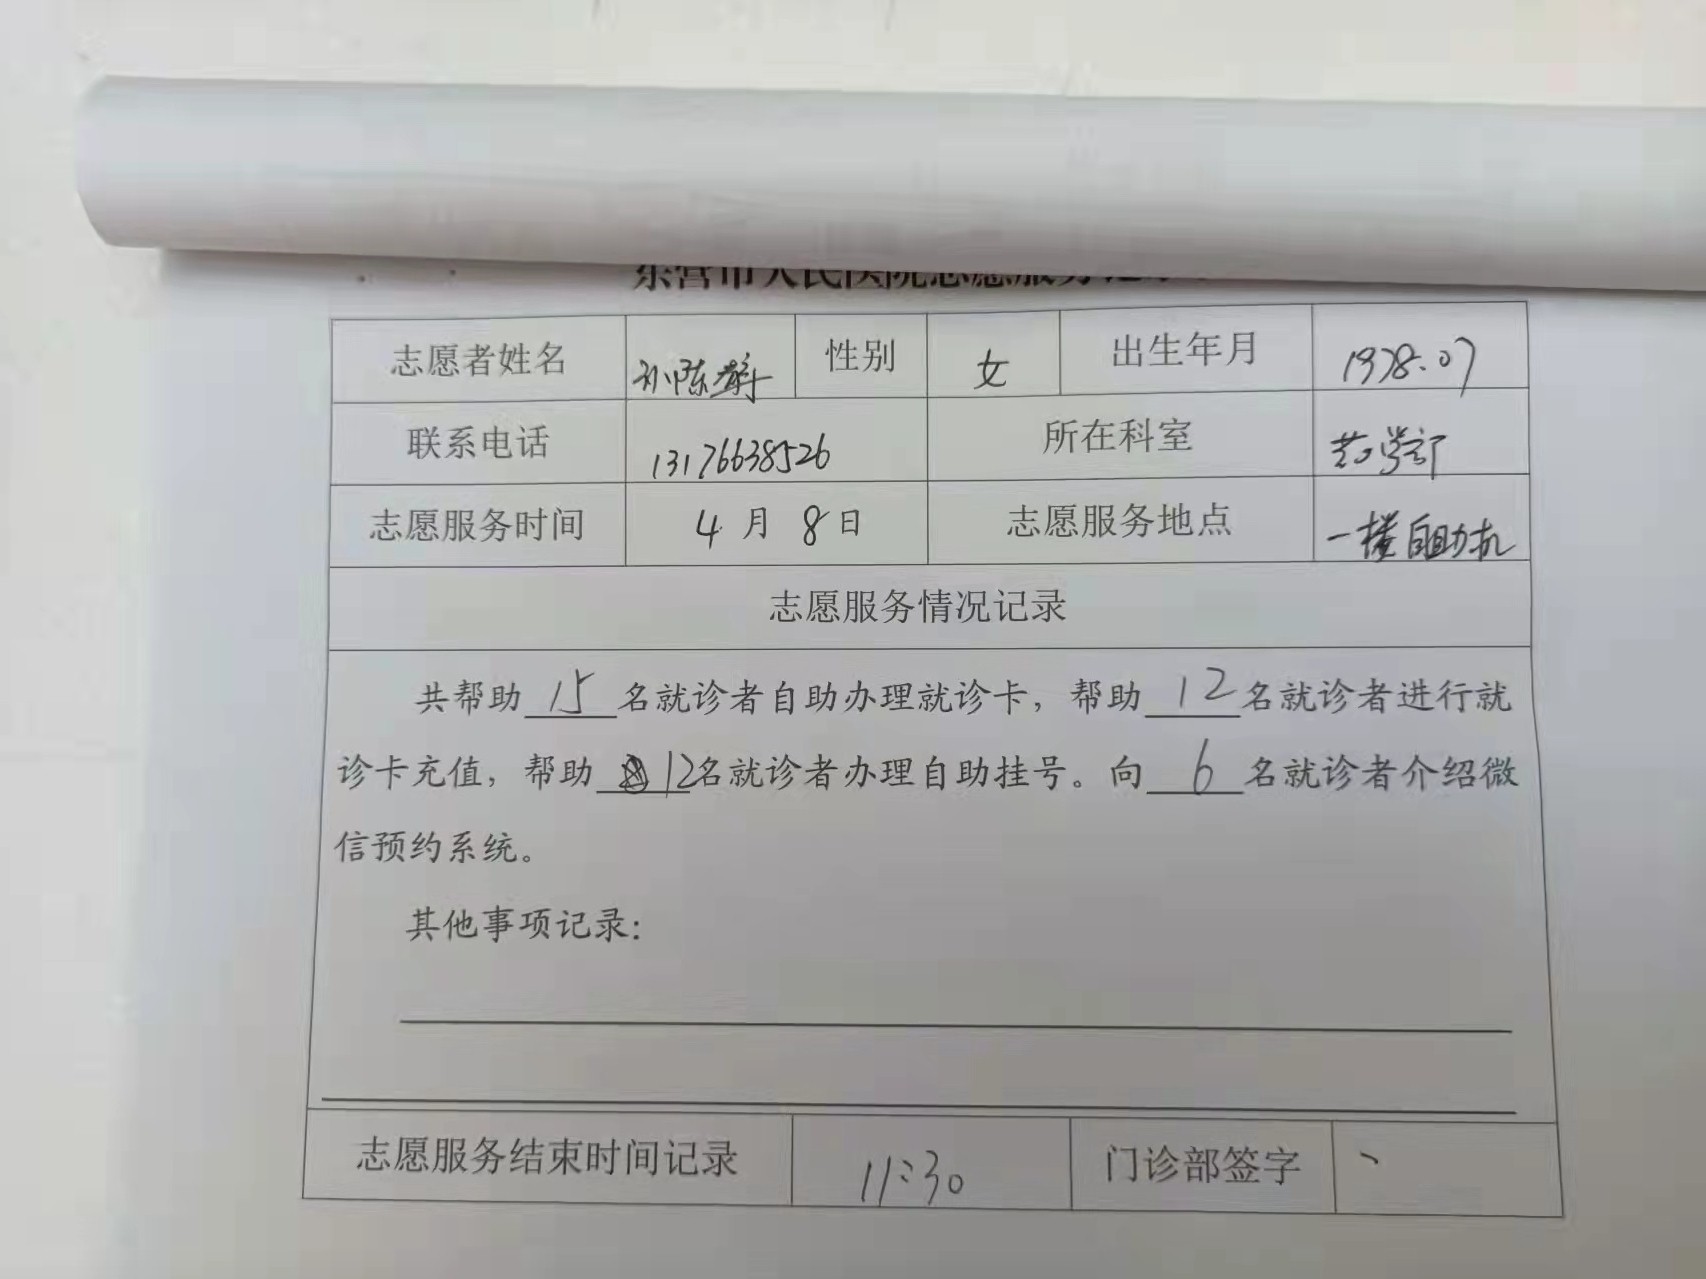 东营市人民医院志愿服务记录
志愿者姓名 孙陈 性别 女 出生年月 1978.07
联系电话 13176638526 所在科室 药学部
志愿服务时间 4月8日 志愿服务地点 一楼自助机
志愿服务情况记录
共帮助15名就诊者自助办理就诊卡，帮助12名就诊者进行就
诊卡充值，帮助12名就诊者办理自助挂号。向6名就诊者介绍微
信预约系统。
其他事项记录：
志愿服务结束时间记录 11:30 门诊部签字